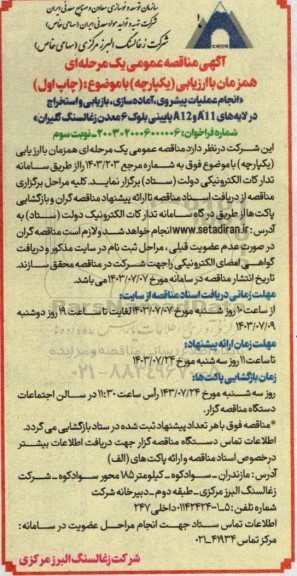 سازمان توسعه و نوسازی معادن و صنایع معدنی ایران
شرکت تهیه و تولید مواد معدنی ایران (سهامی خاص)
شرکت زغالسنگ البرز مرکزی (سهامی خاص)
آگهی مناقصه عمومی یک مرحله ای
همزمان با ارزیابی (یکپارچه) با موضوع: (چاپ اول)
«انجام عملیات پیشروی، آماده سازی، بازیابی و استخراج
در لایه های A11 و A12 پایینی بلوک ۶ معدن زغالسنگ گلیران»
شماره فراخوان: ۲۰۰۳۰۲۰۰۰۶۰۰۰۰۰۶ - نوبت سوم
این شرکت در نظر دارد مناقصه عمومی یک مرحله ای همزمان با ارزیابی
(یکپارچه) با موضوع فوق به شماره مرجع ۱۴۰۳/۲۰۳ را از طریق سامانه
تدارکات الکترونیکی دولت (ستاد) برگزار نماید. کلیه مراحل برگزاری
مناقصه از دریافت اسناد مناقصه تا ارائه پیشنهاد مناقصه گران و بازگشایی
پاکت ها از طریق درگاه سامانه تدارکات الکترونیک دولت (ستاد) به
آدرس: www.setadiran.ir انجام خواهد شد و لازم است مناقصه گران
در صورت عدم عضویت قبلی، مراحل ثبت نام در سایت مذکور و دریافت
گواهی امضای الکترونیکی را جهت شرکت در مناقصه محقق سازند.
تاریخ انتشار مناقصه در سامانه مورخ ۱۴۰۳/۰۷/۰۷ می باشد.
مهلت زمانی دریافت اسناد مناقصه از سایت:
از ساعت ۱۰ روز شنبه مورخ ۱۴۰۳/۰۷/۰۷ لغایت تا ساعت ۱۹ روز دوشنبه
۱۴۰۳/۰۷/۰۹
مهلت زمان ارائه پیشنهاد:
تا ساعت ۱۱ روز سه شنبه مورخ ۱۴۰۳/۰۷/۲۴
زمان بازگشایی پاکت ها:
روز سه شنبه مورخ ۱۴۰۳/۰۷/۲۴ رأس ساعت ۱۱:۳۰ در سالن اجتماعات
دستگاه مناقصه گزار.
*مناقصه فوق با هر تعداد پیشنهاد ثبت شده در ستاد بازگشایی می گردد.
اطلاعات تماس دستگاه مناقصه گزار جهت دریافت اطلاعات بیشتر
در خصوص اسناد مناقصه و ارائه پاکت های (الف)
آدرس: مازندران - سوادکوه - کیلومتر ۱۸۵ محور سوادکوه - شرکت
زغالسنگ البرز مرکزی - طبقه دوم - دبیرخانه شرکت
شماره تلفن: ۵-۰۱۱۴۲۴۲۴۰۰۱ داخلی ۲۴۷
اطلاعات تماس ستاد جهت انجام مراحل عضویت در سامانه:
مرکز تماس ۴۱۹۳۴-۰۲۱
شرکت زغالسنگ البرز مرکزی